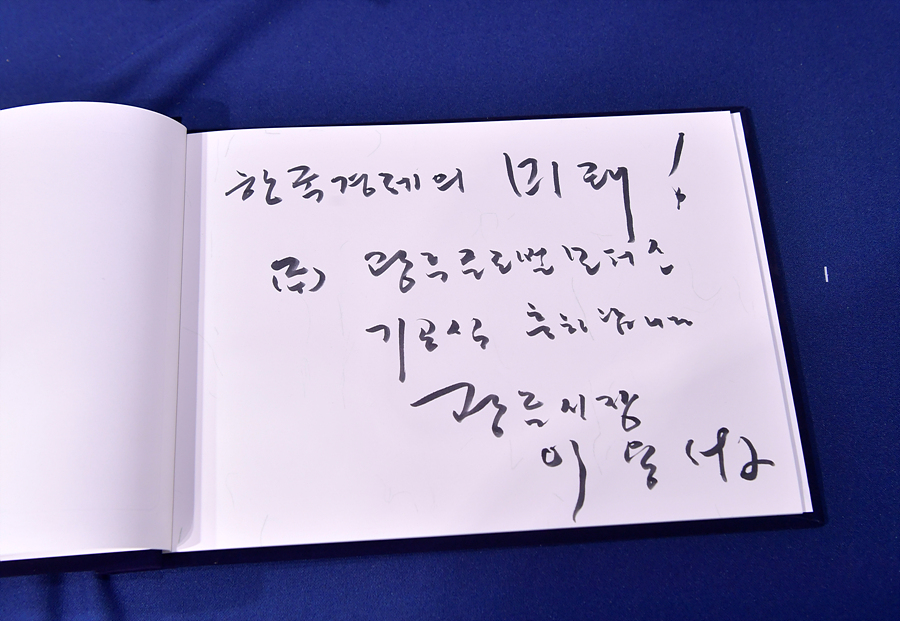 한국경제의 미래!
(주) 광주글로벌모터스
기공식 축하합니다
광주시장
이용섭